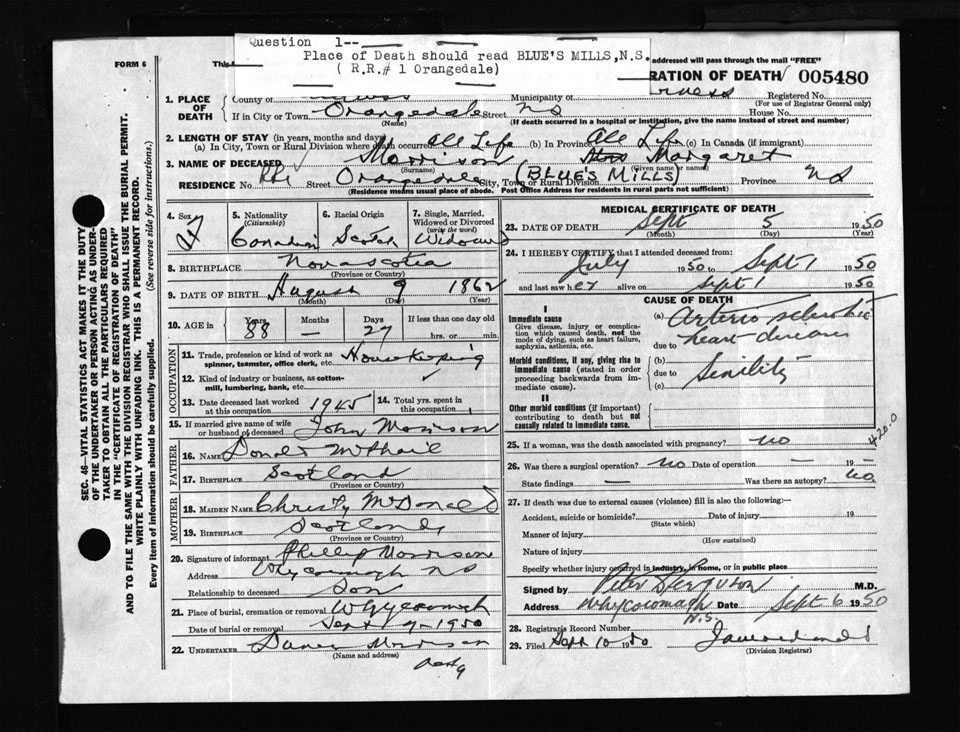 Question 1--
Place of Death should read BLUE'S MILLS,N.S.
( R.R.# 1 Orangedale)
FORM 6
This
addressed will pass through the mail "FREE"
RATION OF DEATH 005480
1. PLACE OF DEATH
County of
Municipality of
Registered No.
(For use of Registrar General only)
If in City or Town Orangedale Street NS House No.
(Name) (If death occurred in a hospital or institution, give the name instead of street and number)
2. LENGTH OF STAY (in years, months and days)
(a) In City, Town or Rural Division where death occurred All Life (b) In Province All Life (c) In Canada (if immigrant)
3. NAME OF DECEASED Morrison Mrs Margaret
(Surname) (Given name or names)
RESIDENCE No. RR1 Street Orangedale City, Town or Rural Division (BLUE'S MILLS) Province NS
(Residence means usual place of abode. Post Office Address for residents in rural parts not sufficient)
4. Sex F
5. Nationality (Citizenship) Canadian
6. Racial Origin Scotch
7. Single, Married, Widowed or Divorced (write the word)
8. BIRTHPLACE Nova Scotia
(Province or Country)
9. DATE OF BIRTH August 9 1862
(Month) (Day) (Year)
10. AGE in Years 88 Months — Days 27 If less than one day old hrs. or min.
OCCUPATION
11. Trade, profession or kind of work as spinner, teamster, office clerk, etc. Housekeeping
12. Kind of industry or business, as cotton-mill, lumbering, bank, etc. ✓
13. Date deceased last worked at this occupation 1945
14. Total yrs. spent in this occupation
15. If married give name of wife or husband of deceased John Morrison
FATHER
16. NAME Donald McPhail
17. BIRTHPLACE Scotland
(Province or Country)
MOTHER
18. MAIDEN NAME Christy McDonald
19. BIRTHPLACE Scotland
(Province or Country)
20. Signature of informant Phillip Morrison
Address Whycocomagh NS
Relationship to deceased Son
21. Place of burial, cremation or removal
Date of burial or removal Sept 7-1950
22. UNDERTAKER Morrison
(Name and address)
MEDICAL CERTIFICATE OF DEATH
23. DATE OF DEATH Sept 5 1950
(Month) (Day) (Year)
24. I HEREBY CERTIFY that I attended deceased from:
July 1950 to Sept 1 1950
and last saw her alive on Sept 1 1950
CAUSE OF DEATH
I
Immediate cause
Give disease, injury or complication which caused death, not the mode of dying, such as heart failure, asphyxia, asthenia, etc.
(a) Arterio sclerotic
due to heart disease
Morbid conditions, if any, giving rise to immediate cause (stated in order proceeding backwards from immediate cause).
(b)
due to Senility
(c)
II
Other morbid conditions (if important) contributing to death but not causally related to immediate cause.
420.0
25. If a woman, was the death associated with pregnancy? no
26. Was there a surgical operation? no Date of operation — 19 —
State findings — Was there an autopsy? no
27. If death was due to external causes (violence) fill in also the following:—
Accident, suicide or homicide? Date of injury 19
(State which)
Manner of injury
(How sustained)
Nature of injury
Specify whether injury occurred in industry, in home, or in public place
Signed by M.D.
Address Whycocomagh N.S. Date Sept 6 1950
28. Registrar's Record Number
29. Filed Sept 10 1950
(Division Registrar)
SEC. 46—VITAL STATISTICS ACT MAKES IT THE DUTY
OF THE UNDERTAKER OR PERSON ACTING AS UNDER-
TAKER TO OBTAIN ALL THE PARTICULARS REQUIRED
IN THE "CERTIFICATE OF REGISTRATION OF DEATH"
AND TO FILE THE SAME WITH THE DIVISION REGISTRAR WHO SHALL ISSUE THE BURIAL PERMIT.
WRITE PLAINLY WITH UNFADING INK. THIS IS A PERMANENT RECORD.
Every item of information should be carefully supplied. (See reverse side for instructions.)